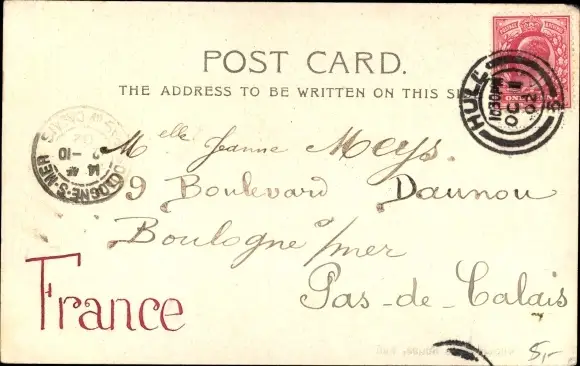 POST CARD.
THE ADDRESS TO BE WRITTEN ON THIS
HULL
10.30PM
OC 1
02
BOULOGNE-S-MER
14
2 - 10
02
Mlle Jeanne Meys.
9 Boulevard Daunou
Boulogne s/mer
Pas-de-Calais
France
5,-